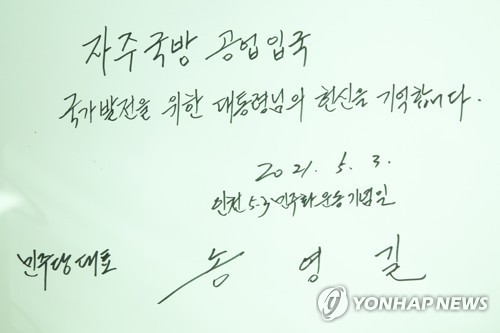 자주국방 공업입국
국가발전을 위한 대통령님의 헌신을 기억합니다.
2021. 5. 3.
인천 5.3 민주화운동 기념일
민주당 대표 송영길
YONHAP NEWS